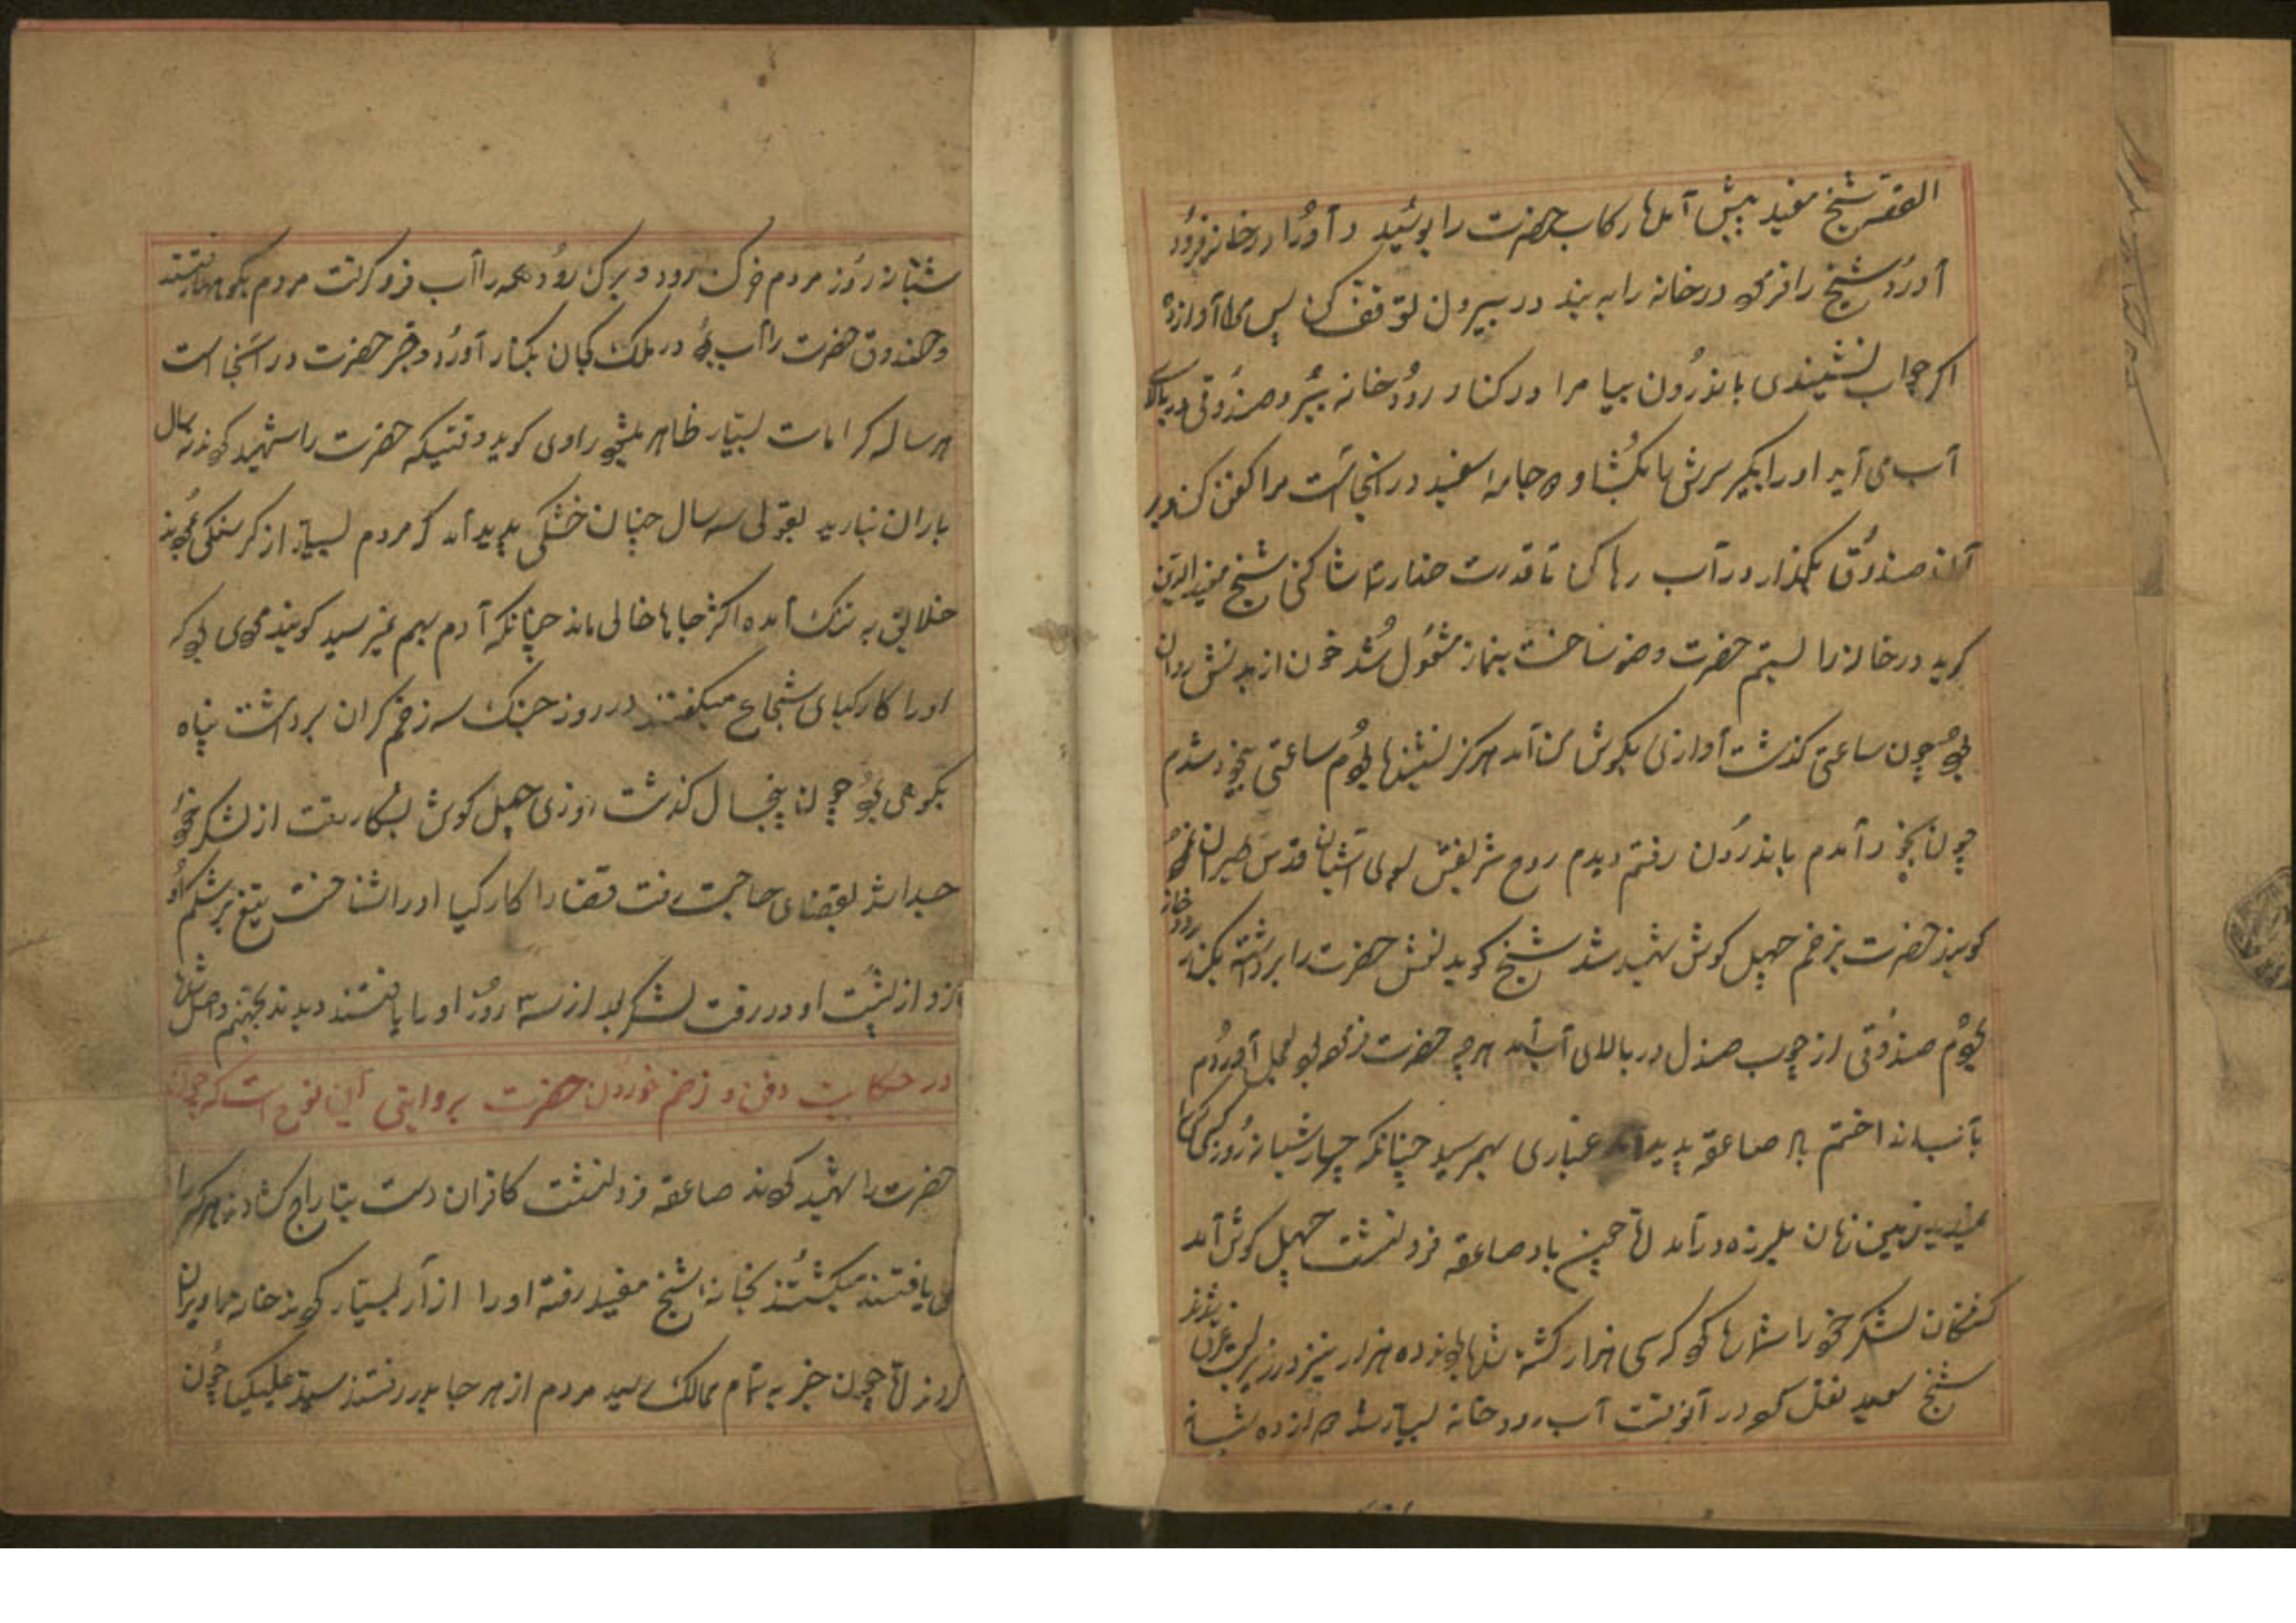 القصه شیخ مفید پیش آمد رکاب حضرت را بوسید و او را در خانه فرود
آورد شیخ را فرمود در خانه را به بند در بیرون توقف کن پس مرا آواز ده
اگر جواب نشنیدی باندرون بیا مرا در کنار رودخانه ببر و صندوقی در بالای
آب می آید او را بگیر سرش را بگشا و جامه سفید در انجاست مرا کفن کن در
آن صندوق بگذار در آب رها کن تا قدرت خدا را تماشا کنی شیخ مفید الدین
گوید در خانه را بستم حضرت وضو ساخت بنماز مشغول شد خون از بدنش روان
بود چون ساعتی گذشت آوازی بگوش من آمد هرگز نشنیده بودم ساعتی بیخود شدم
چون بخود آمدم باندرون رفتم دیدم روح شریفش بسوی آشیان قدس طیران نموده
گویند حضرت بزخم چهل گوش شهید شد شیخ گوید نعش حضرت را برداشته بکنار رودخانه
بردم صندوقی از چوب صندل در بالای آب آمد هر چه حضرت فرموده بود بعمل آوردم
بآب انداختم باد صاعقه پدید آمد غباری بهمرسید چنانکه چهار شبانه روز کس کس را
نمیدید زمین زمان بلرزه در آمد تا چون باد صاعقه فرونشست چهل گوش آمد
کشتگان لشکر خود را شماره کرد که سی هزار کشته شده بودند ده هزار نیز در زیر غرق شدند
شیخ سعید نقل کرد در آنوقت آب رودخانه بسیار شد دوازده شبانه
شبانه روز مردم همه را آب فرو گرفت مردم بکوهها رفتند
و صندوق حضرت را آب برد در ملک کنار آورد و قبر حضرت در آنجا است
هر ساله کرامات بسیار ظاهر میشود راوی گوید وقتیکه حضرت را شهید کردند سه سال
باران نبارید بقولی سه سال چنان خشکی پدید آمد که مردم بسیار از گرسنگی مردند
خلایق به تنگ آمده اکثر جاها خالی ماند چنانکه آدم بهم نمیرسید گویند مردی بود که
او را کارکیای شجاع میگفتند در روز جنگ سه زخم گران برداشت پناه
بکوهی برد چون پنجسال گذشت روزی چهل گوش بشکار رفت از لشکر خود
جدا شد بقضای حاجت رفت قضا را کارکیا او را شناخت تیغ بر شکم او
زد از پشت او در رفت لشکر بعد از سه روز او را یافتند دیدند بجهنم واصل شده
در حکایت دفن و زخم خوردن حضرت بروایتی این نوع است که چون
حضرت را شهید کردند صاعقه فرونشست کافران دست بتاراج گشادند هر کس را
می یافتند میکشتند بخانه شیخ مفید رفته او را آزار بسیار کردند خانه ها ویران
کردند تا چون خبر به تمام ممالک رسید مردم از هر جا بدر رفتند سید علیکیا چون